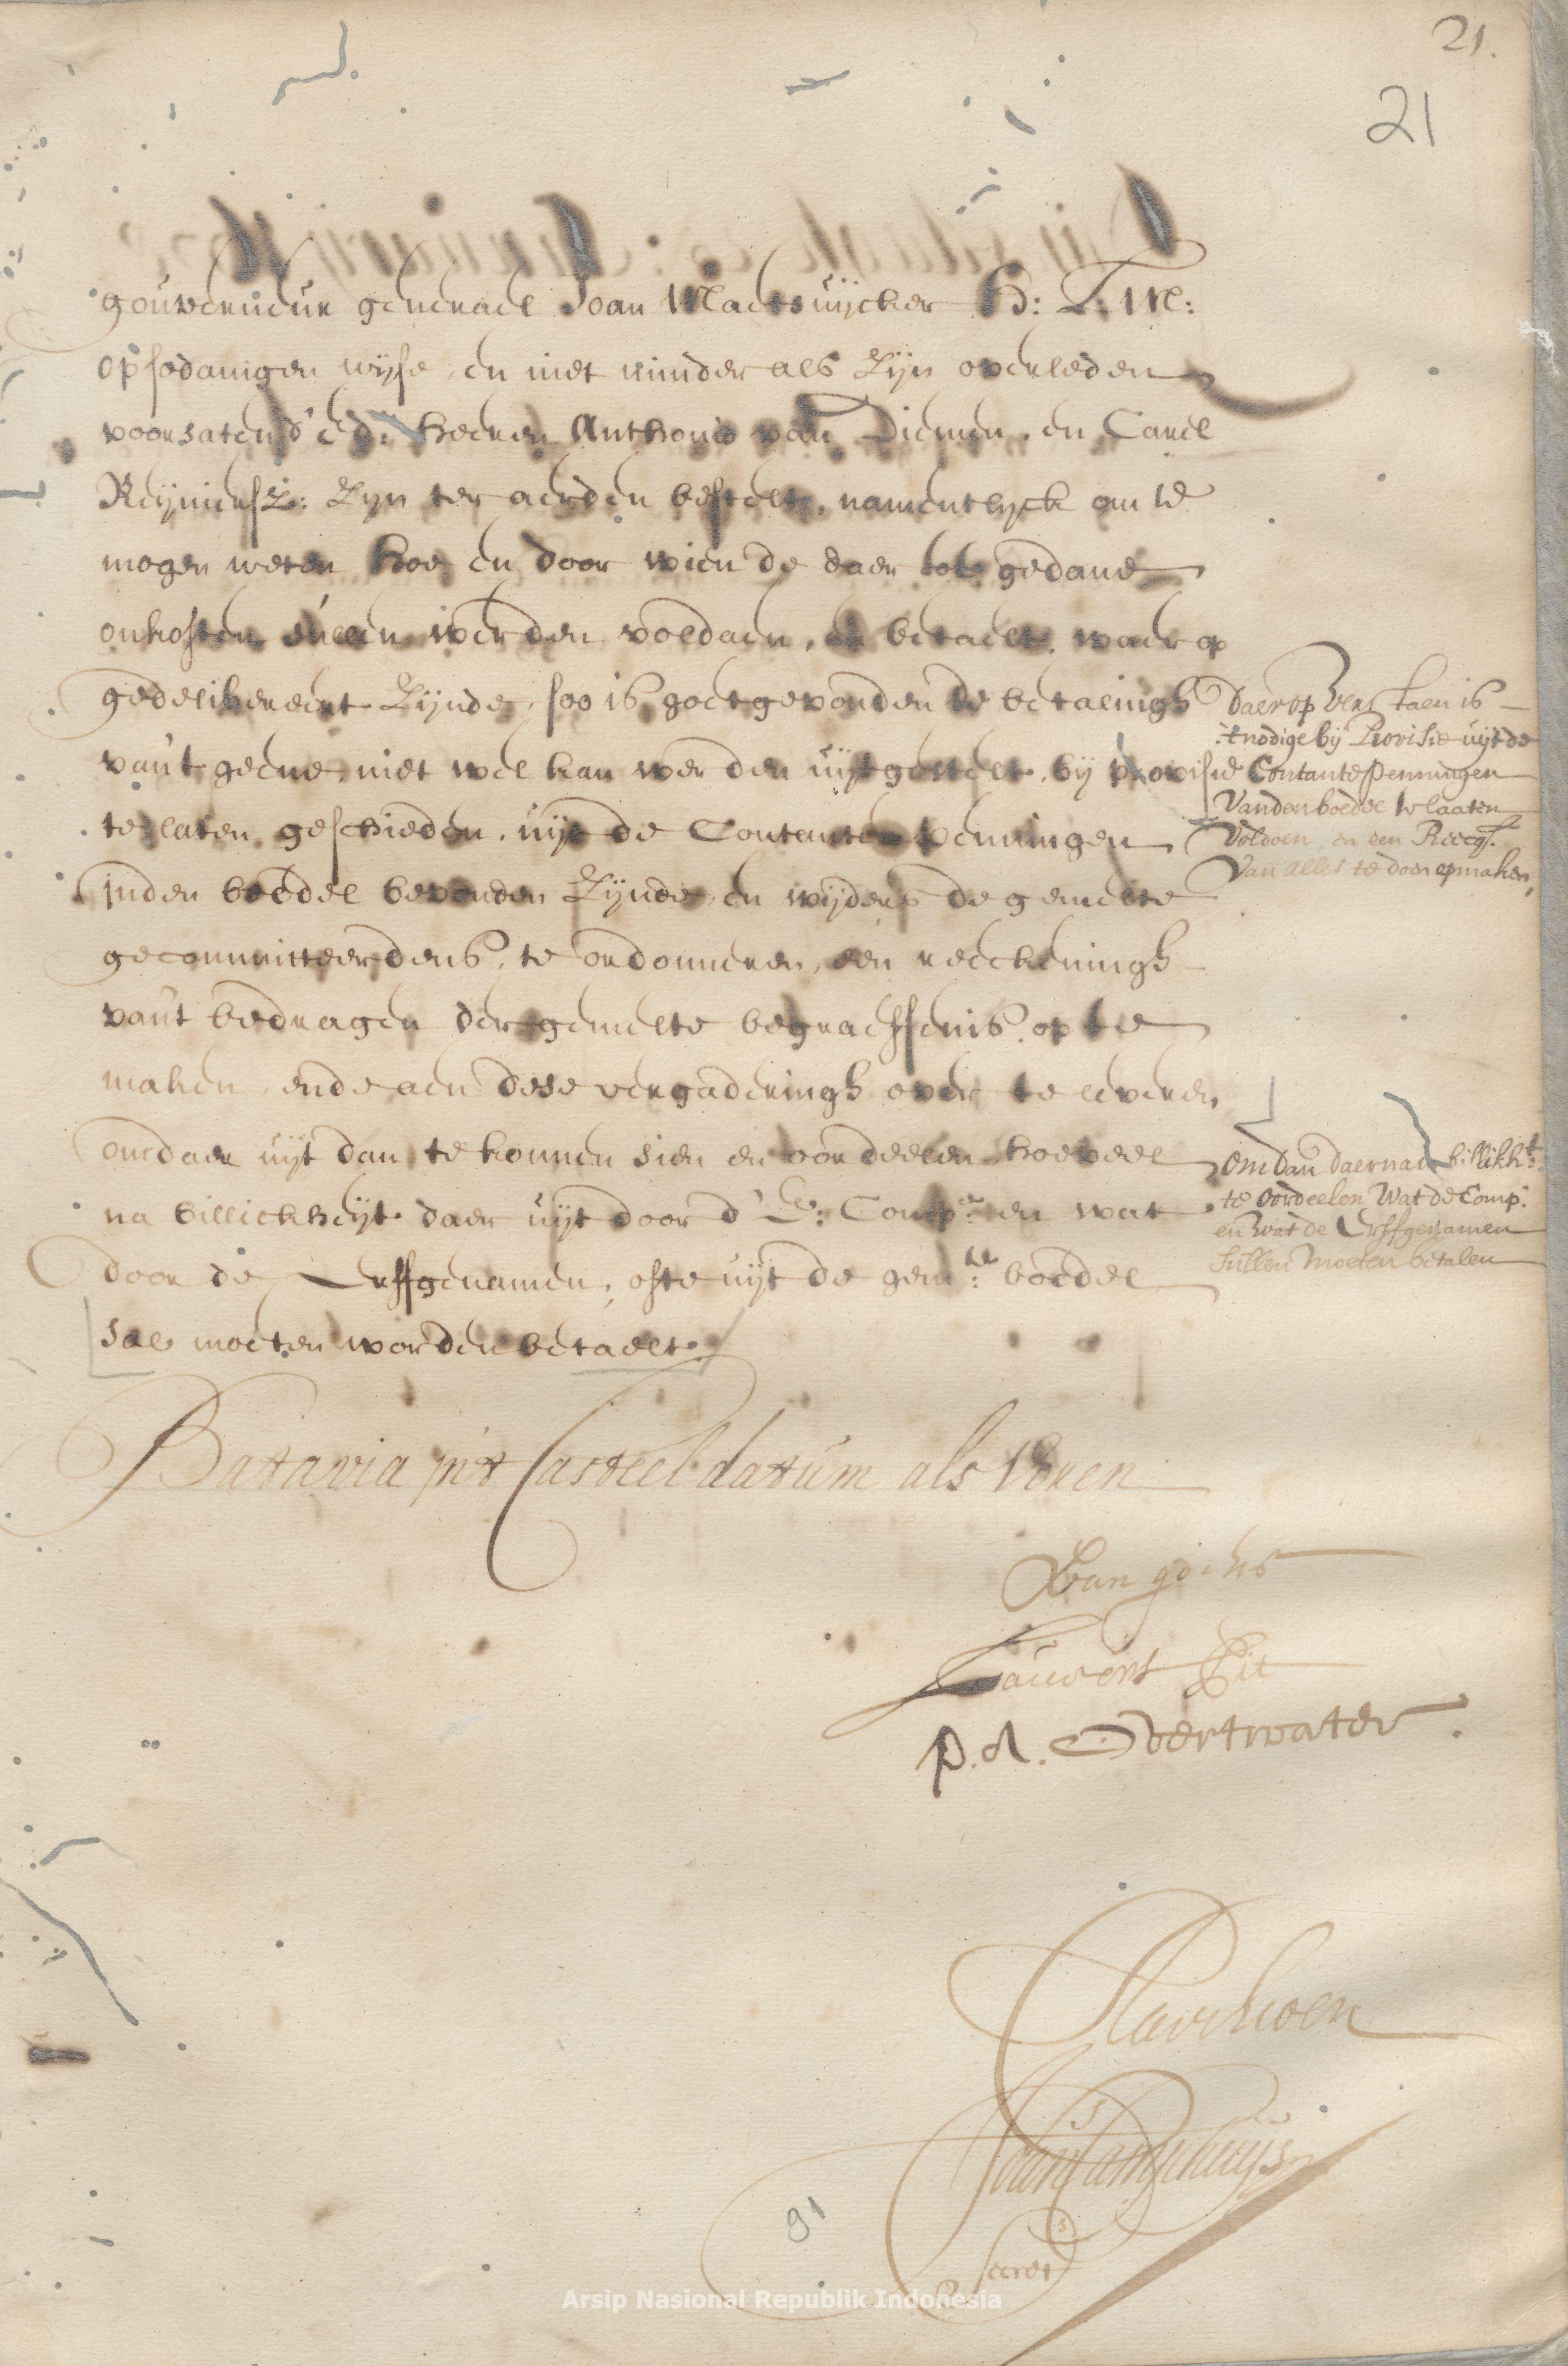 21.
21
gouverneur generael Joan Maetsuijcker H: L: M:
op sodanigen wijse, en niet minder als Zijn overleden
voorsaten d' Ed: heeren Anthonio van Diemen, en Carel
Reijniersz: Zijn ter aerden bestelt, namentlyck om te
mogen weten hoe en door wien de daer toe gedane
onkosten sullen werden voldaen, en betaelt, waer op
gedelibereert Zijnde, soo is goetgevonden de betalingh
van't geene niet wel kan werden uijtgestelt, bij provisie
te laten geschieden, uijt de Contante penningen
inden boedel bevonden Zijnde, en wijders de gemelte
gecommitteerdens, te ordonneren, een reeckeningh
van't bedragen der gemelte begraeffenis op te
maken, ende aen dese vergaderingh over te leveren,
om daer uijt dan te konnen sien en oordeelen hoeveel
na billickheijt daer uijt door d' E: Comp:e en wat
door de Erffgenamen, ofte uijt de gem:te boedel
sal moeten worden betaelt.
Daerop verstaen is
't nodige bij Provisie uijt de
Contante penningen
Vanden boedel te laaten
Voldoen, en een Reecq.
Van alles te doen opmaken,
om dan daer na billikh:t
te oordeelen Wat de Comp:
en wat de Erffgenamen
sullen moeten betalen
Batavia in't Casteel datum als Voren
Van goens
Lauvens Pit
P. A. Overtwater.
Joan Camphuijs
Secret:s
91
Arsip Nasional Republik Indonesia